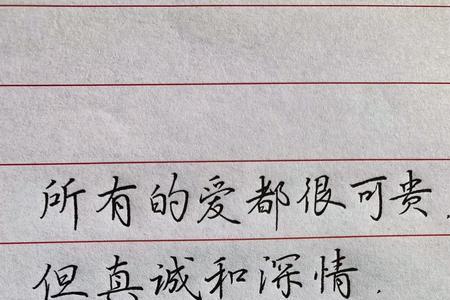 所有的爱都很可贵.
但真诚和深情.